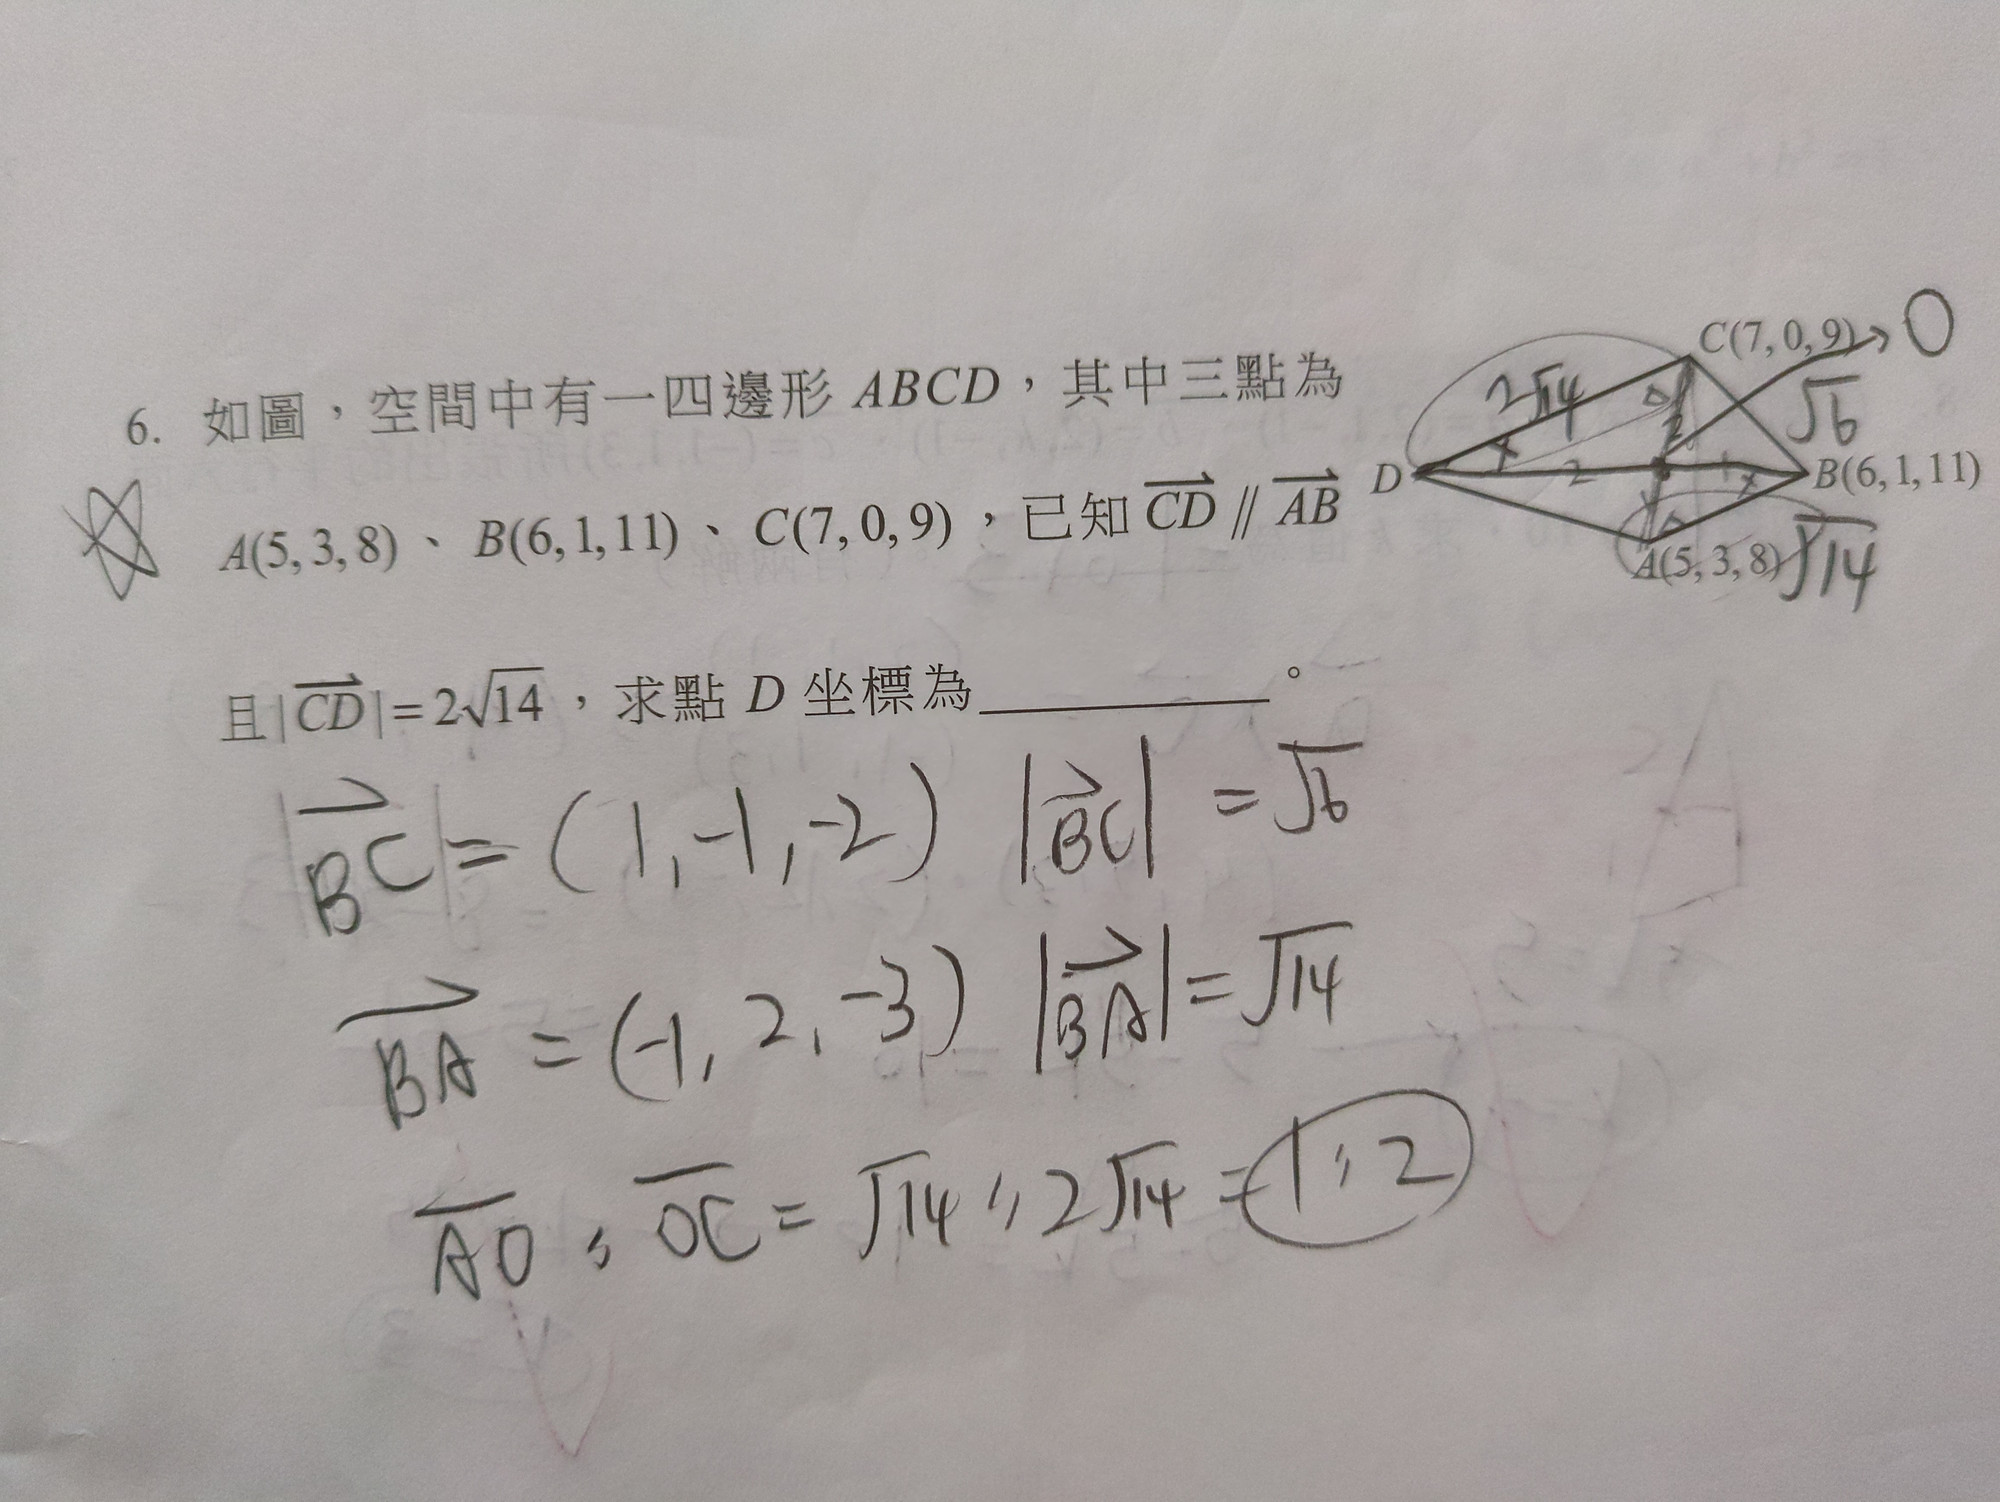 6. 如圖，空間中有一四邊形 ABCD，其中三點為
A(5,3,8)、B(6,1,11)、C(7,0,9)，已知 CD // AB
且|CD|=2√14，求點 D 坐標為＿＿＿＿＿。
C(7,0,9) → O
2√14
√6
D
2
1
B(6,1,11)
A(5,3,8)
√14
|BC| = (1,-1,-2) |BC| = √6
BA = (-1,2,-3) |BA| = √14
AO : OC = √14 : 2√14 = 1:2